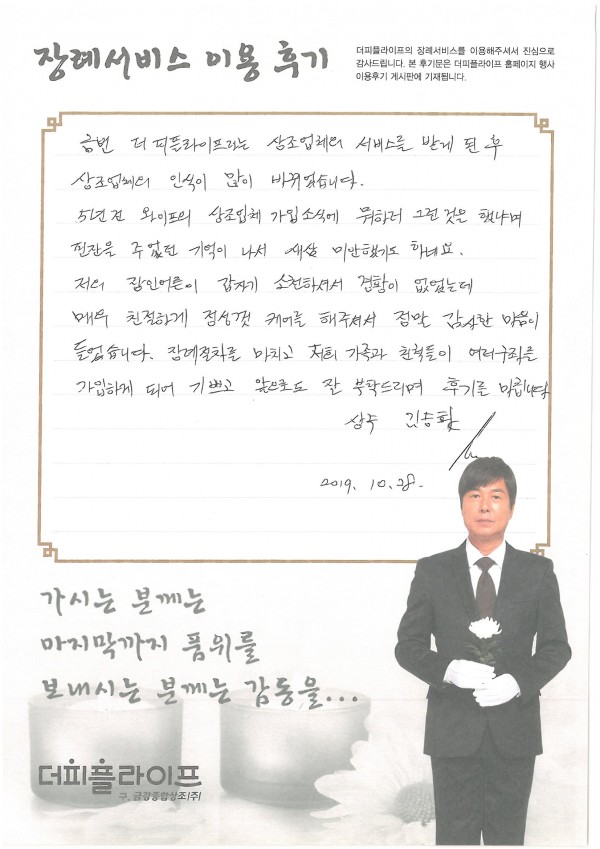 장례서비스 이용 후기
더피플라이프의 장례서비스를 이용해주셔서 진심으로
감사드립니다. 본 후기문은 더피플라이프 홈페이지 행사
이용후기 게시판에 기재됩니다.
금번 더피플라이프라는 상조업체의 서비스를 받게 된 후
상조업체의 인식이 많이 바뀌었습니다.
5년전 와이프의 상조업체 가입소식에 뭐하러 그런것을 했냐며
핀잔을 주었던 기억이 나서 새삼 미안해기도 하네요.
저의 장인어른이 갑자기 소천하셔서 경황이 없었는데
매우 친절하게 정성껏 케어를 해주셔서 정말 감사한 마음이
들었습니다. 장례절차를 마치고 저희 가족과 친척들이 여러구좌를
가입하게 되어 기쁘고 앞으로도 잘 부탁드리며 후기를 마칩니다
상주
2019. 10. 28.
가시는 분께는
마지막까지 품위를
보내시는 분께는 감동을...
더피플라이프
구. 금강종합상조(주)